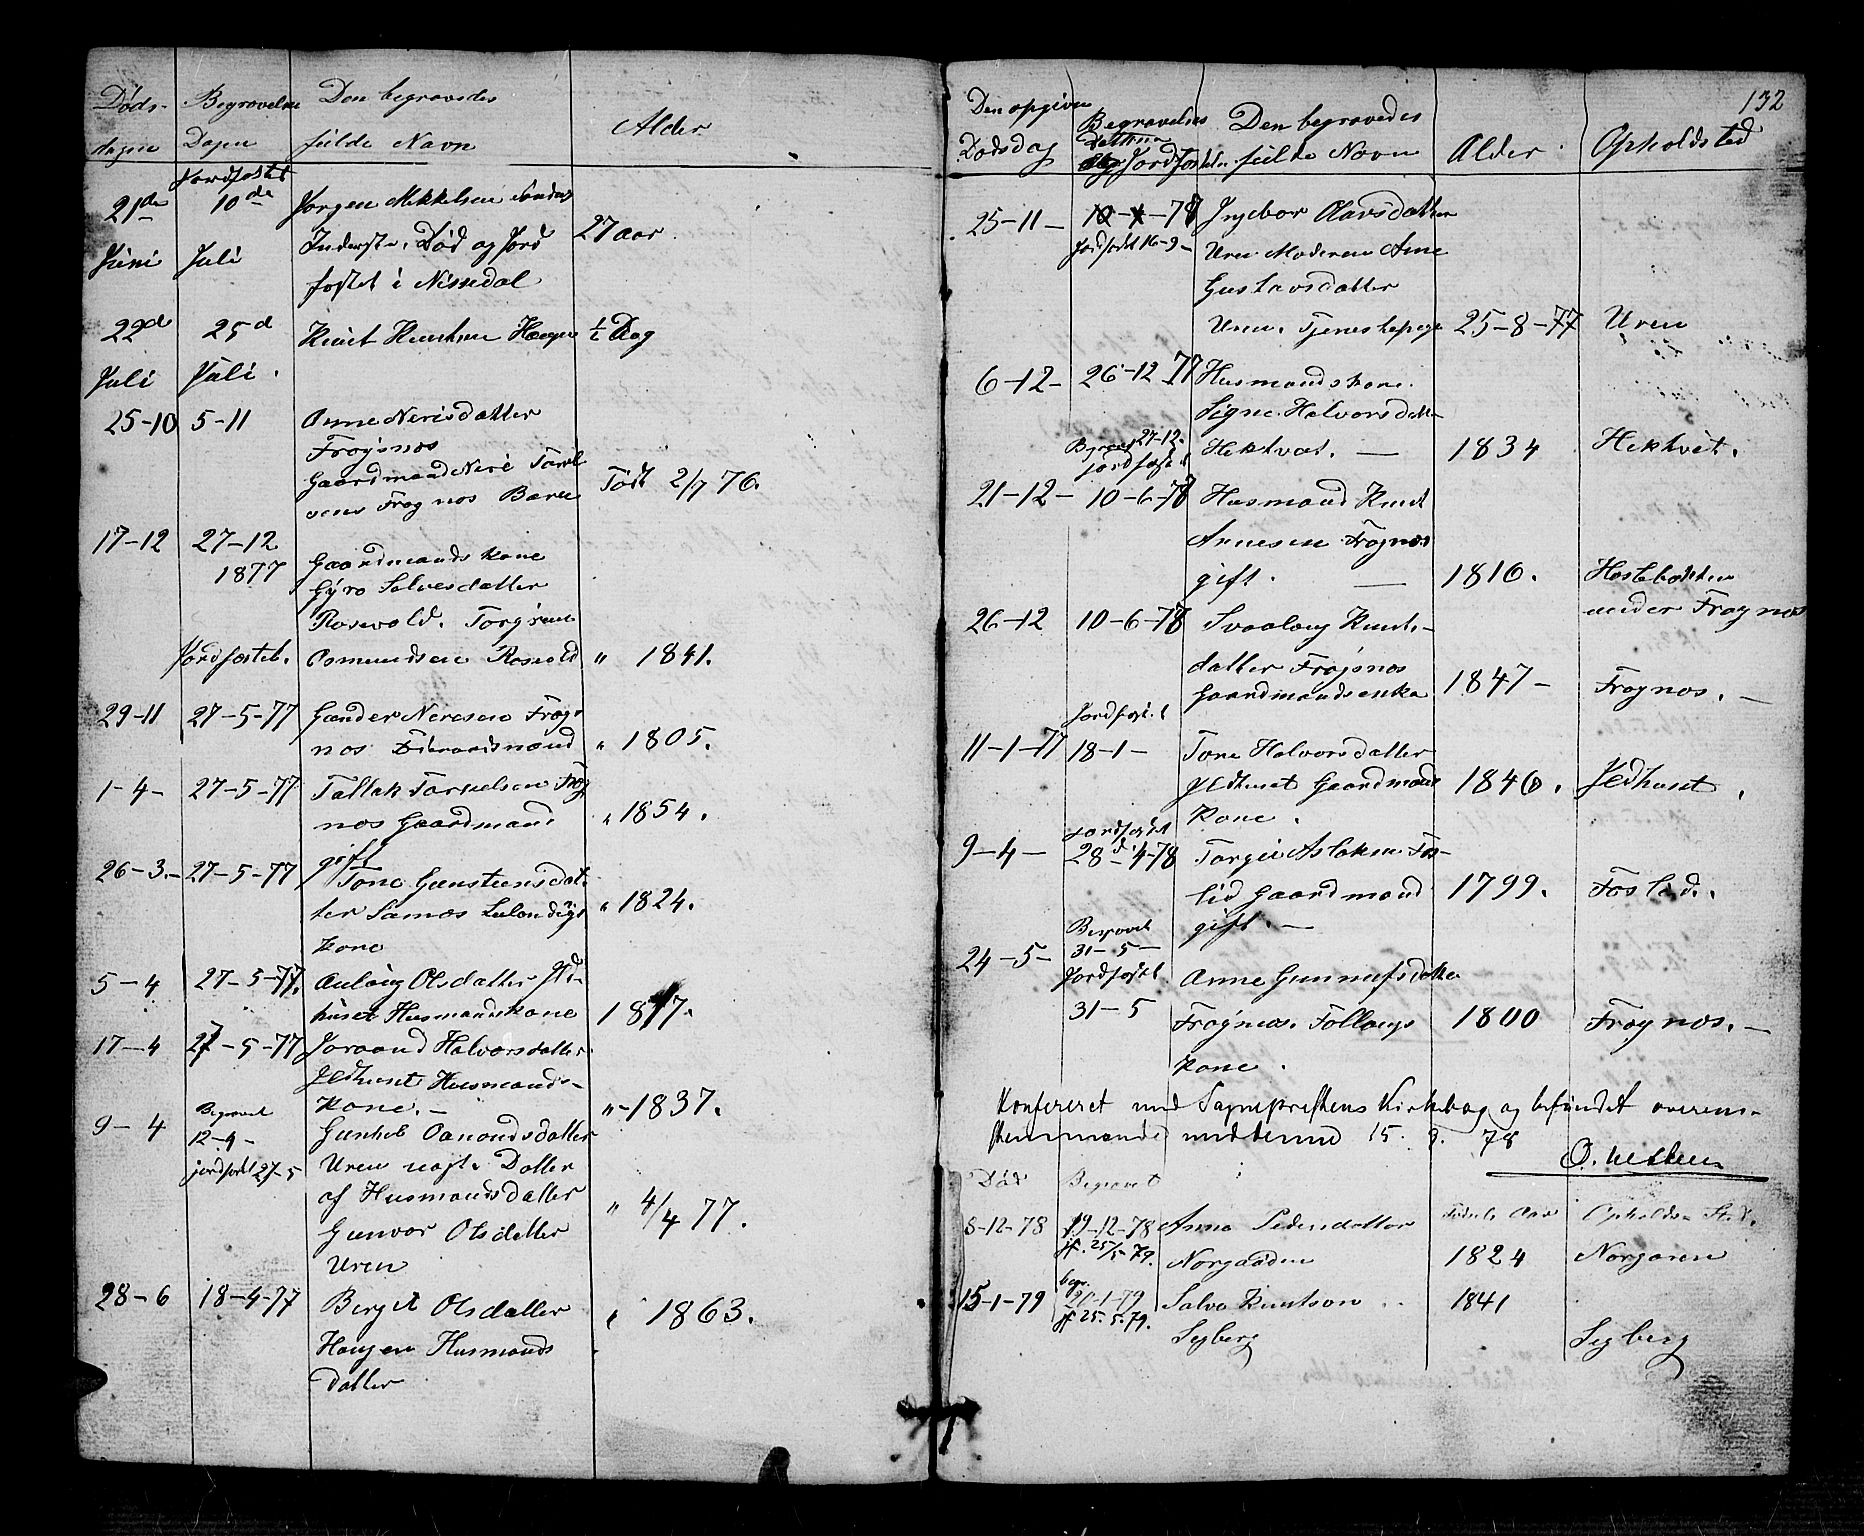 Døds-
dagen
Begravelse
Dagen
Den begravedes
fulde Navn
Alder
Jordfæstet
21de
Juni
10de
Juli
Jørgen Mikkelsen
Inderste. Død og Jord
fæstet i Nissedal
27 aar
22d
Juli
25d
Juli.
Knut Knutsen Haugen
½ Dag
25-10
5-11
Anne Nerisdatter
Frøysnæs
Gaardmand Neri
sens Frøgnæs Barn
Født 2/7 76.
17-12
27-12
1877
Gaardmands kone
Gyro Salvesdatter
Rosevold. Torgrim
Jordfæstet.
Aamundsen Rosvold
" 1841.
29-11
27-5-77
Gunder Neresen Frøgs
næs
" 1805.
1-4-
27-5-77
Tallak Tarkelsen Frøg
næs Gaardmand
gift
" 1854.
26-3.-
27-5-77
Tone Gunsteinsdat-
ter
kone
" 1824.
5-4
27-5-77.
Aulaug Olsdatter Jld-
huset Husmandskone
1817.
17-4
27-5-77
Joraand Halvorsdatter
Jldhuset Husmands-
kone. -
"-1837.
9-4
Begravet
12-4-
jordfæstet 27-5
Gunhild Aanondsdatter
Uren ugift. Datter
af Husmandsdatter
Gunvor Olsdatter
Uren
" 4/4 77.
28-6
18-4-77
Bergit Olsdatter
Haugen Husmands
datter
" 1863.
132
Den opgivne
Dødsdag
Begravelses
Jordfæstelse
Den begravedes
fulde Navn
Alder
Opholdsted
25-11-
-78
Jordfæstet 16-9-
Ingebor Olavsdatter
Uren Moderen Anne
Gustavsdatter
Uren. Tjenestepige
25-8-77
Uren
6-12-
26-12 77
Husmandskone
Signe Halvorsdatter
Begravet 27-12.
jordfæstet
Hekkvet. -
1834
Hekkvet.
21-12-
10-6-78
Husmand Knut
Arnesen Frøgnæs
gift. -
1816.
Hestebakken
under Frøgnæs
26-12
10-6-78
Svaalaug Knuts-
datter Frøysnæs
Gaardmandsenke
1847-
Frøgnæs. -
Jordfæstet
11-1-77
18-1-
Tone Halvorsdatter
Jldhuset Gaardmands
kone.
1846.
Jldhuset.
9-4-
Jordfæstet
28d-4-78
Torgei Aslaksen Fos-
lid Gaardmand
gift. -
1799.
Foslid.
24-5-
Begravet
31-5-
Jordfæstet
31-5
Anne Gunnufsdatter
Frøgnæs. Tollaugs
kone.
1800
Frøgnæs. -
Konfereret med Sogneprestens Kirkebog og befundet overens-
stemmende med denne 15. 9. 78
O. Nilsen
Død
Begravet
8-12-78
19-12-78
jf. 25/5-79.
Anne Pedersdatter
Norgaarden
Fødsels Aar
1824
Opholds Sted.
Norgaren
15-1-79
begr.
21-1-79
jf 25. 5. 79.
Salve Knutson
Segberg
1841
Segberg